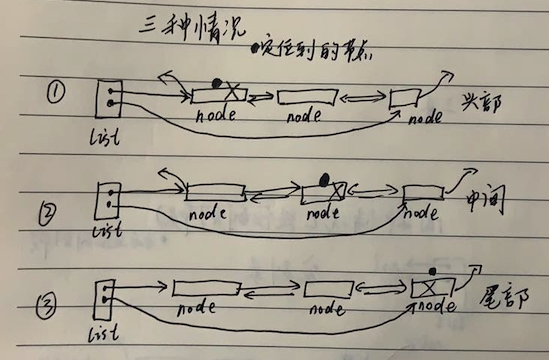 三种情况
●定位到的节点
① node node node 头部
list
② node node node 中间
list
③ node node node 尾部
list